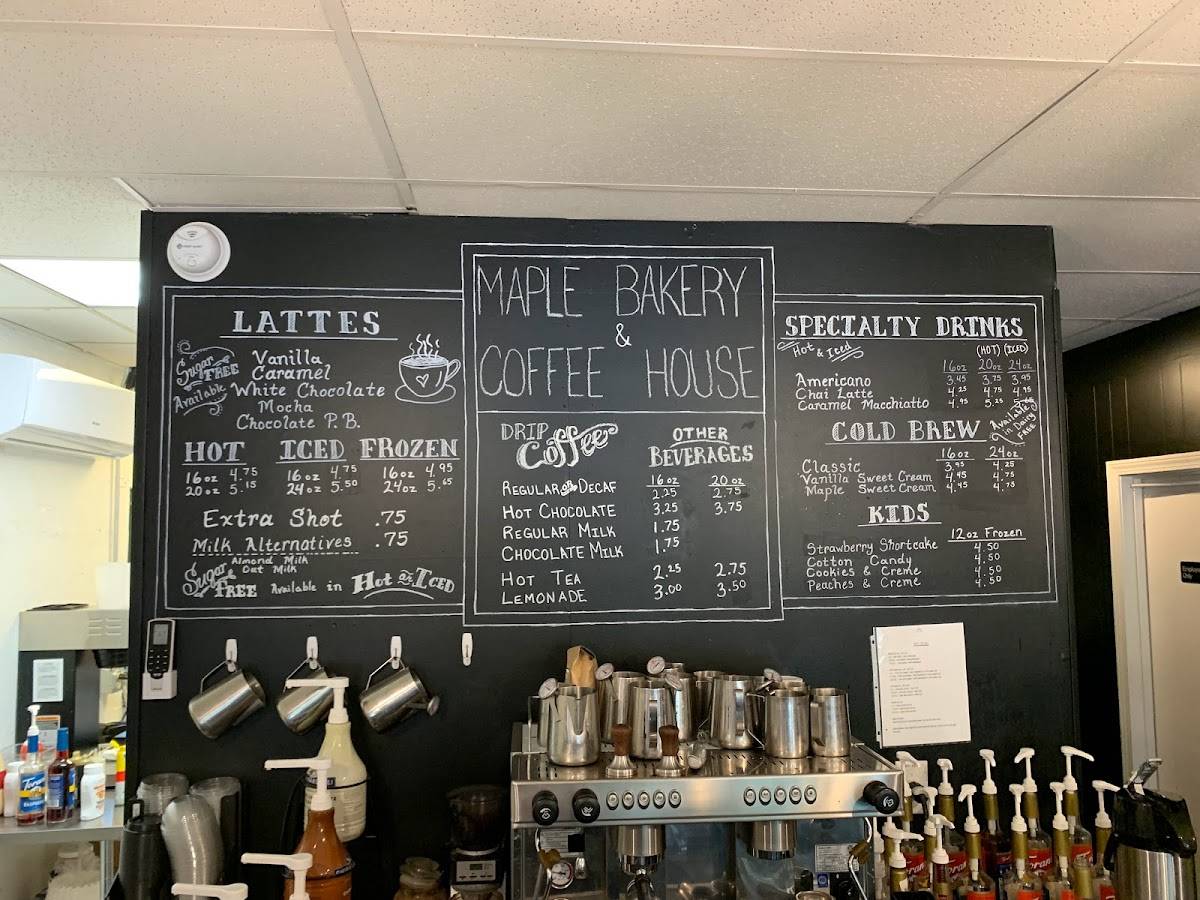 MAPLE BAKERY
&
COFFEE HOUSE
LATTES
Sugar FREE Available
Vanilla
Caramel
White Chocolate
Mocha
Chocolate P.B.
HOT ICED FROZEN
16oz 4.75 16oz 4.75 16oz 4.95
20oz 5.15 24oz 5.50 24oz 5.65
Extra Shot .75
Milk Alternatives .75
Almond Milk
Oat Milk
Sugar FREE Available in Hot or Iced
DRIP Coffee
OTHER BEVERAGES
16oz 20oz
REGULAR or DECAF 2.25 2.75
HOT CHOCOLATE 3.25 3.75
REGULAR MILK 1.75
CHOCOLATE MILK 1.75
HOT TEA 2.25 2.75
LEMONADE 3.00 3.50
SPECIALTY DRINKS
Hot & Iced
(HOT) (ICED)
16oz 20oz 24oz
Americano 3.45 3.75 3.95
Chai Latte 4.25 4.75 4.95
Caramel Macchiatto 4.95 5.25
Available in Dairy FREE
COLD BREW
16oz 24oz
Classic 3.95 4.25
Vanilla Sweet Cream 4.45 4.75
Maple Sweet Cream 4.45 4.75
KIDS
12oz Frozen
Strawberry Shortcake 4.50
Cotton Candy 4.50
Cookies & Creme 4.50
Peaches & Creme 4.50
Torani